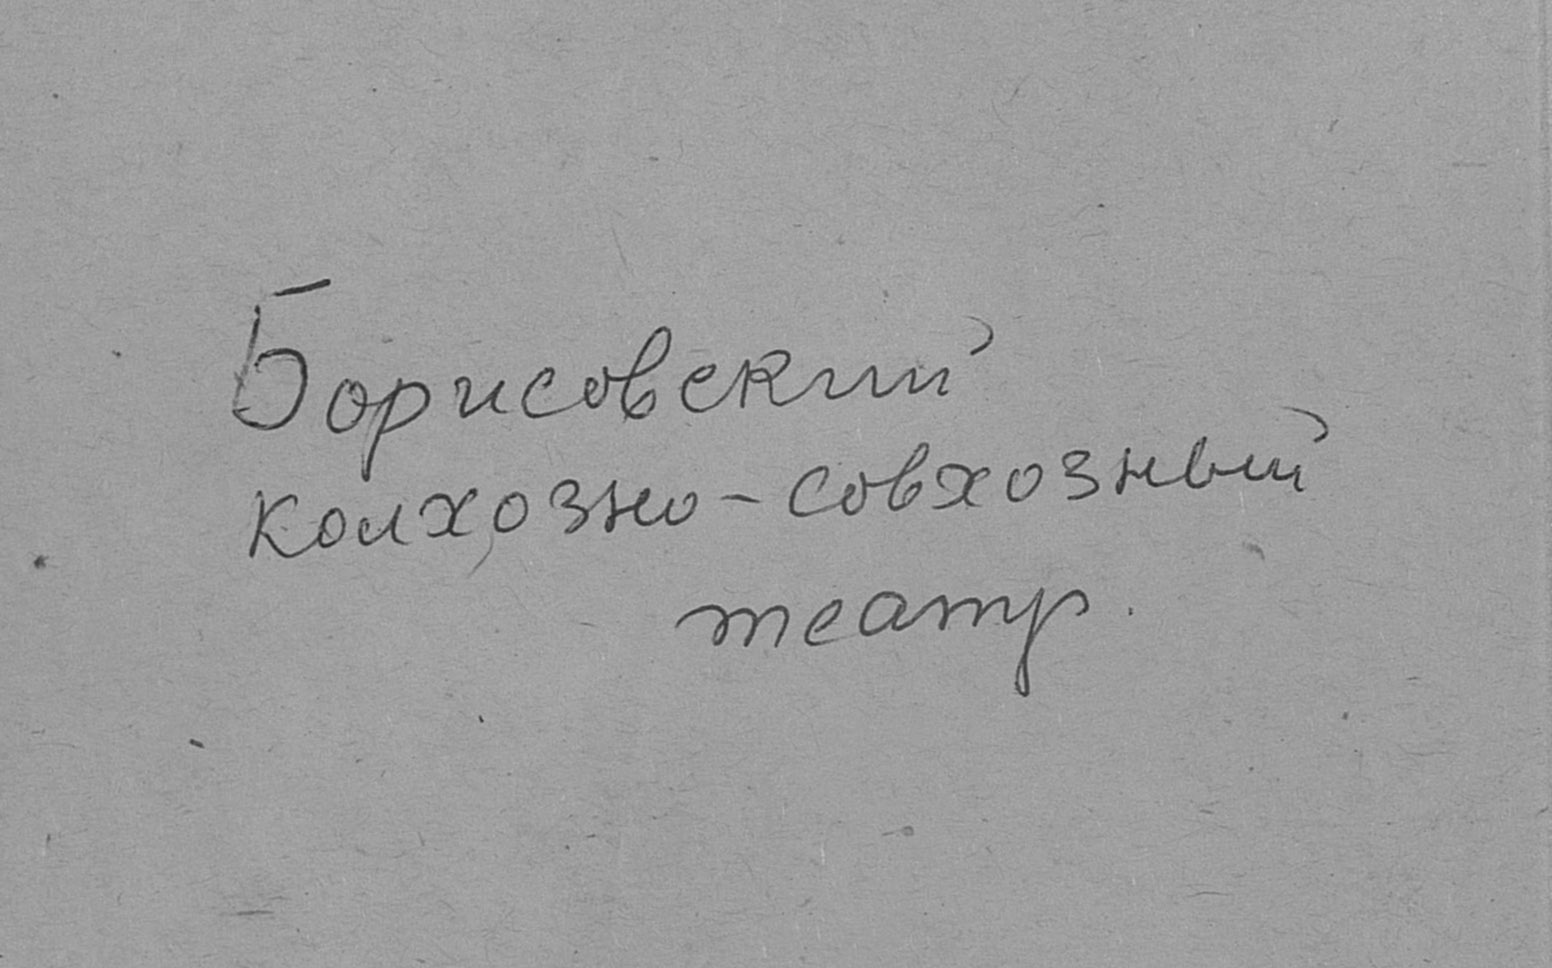 Борисовский
колхозно-совхозный
театр.